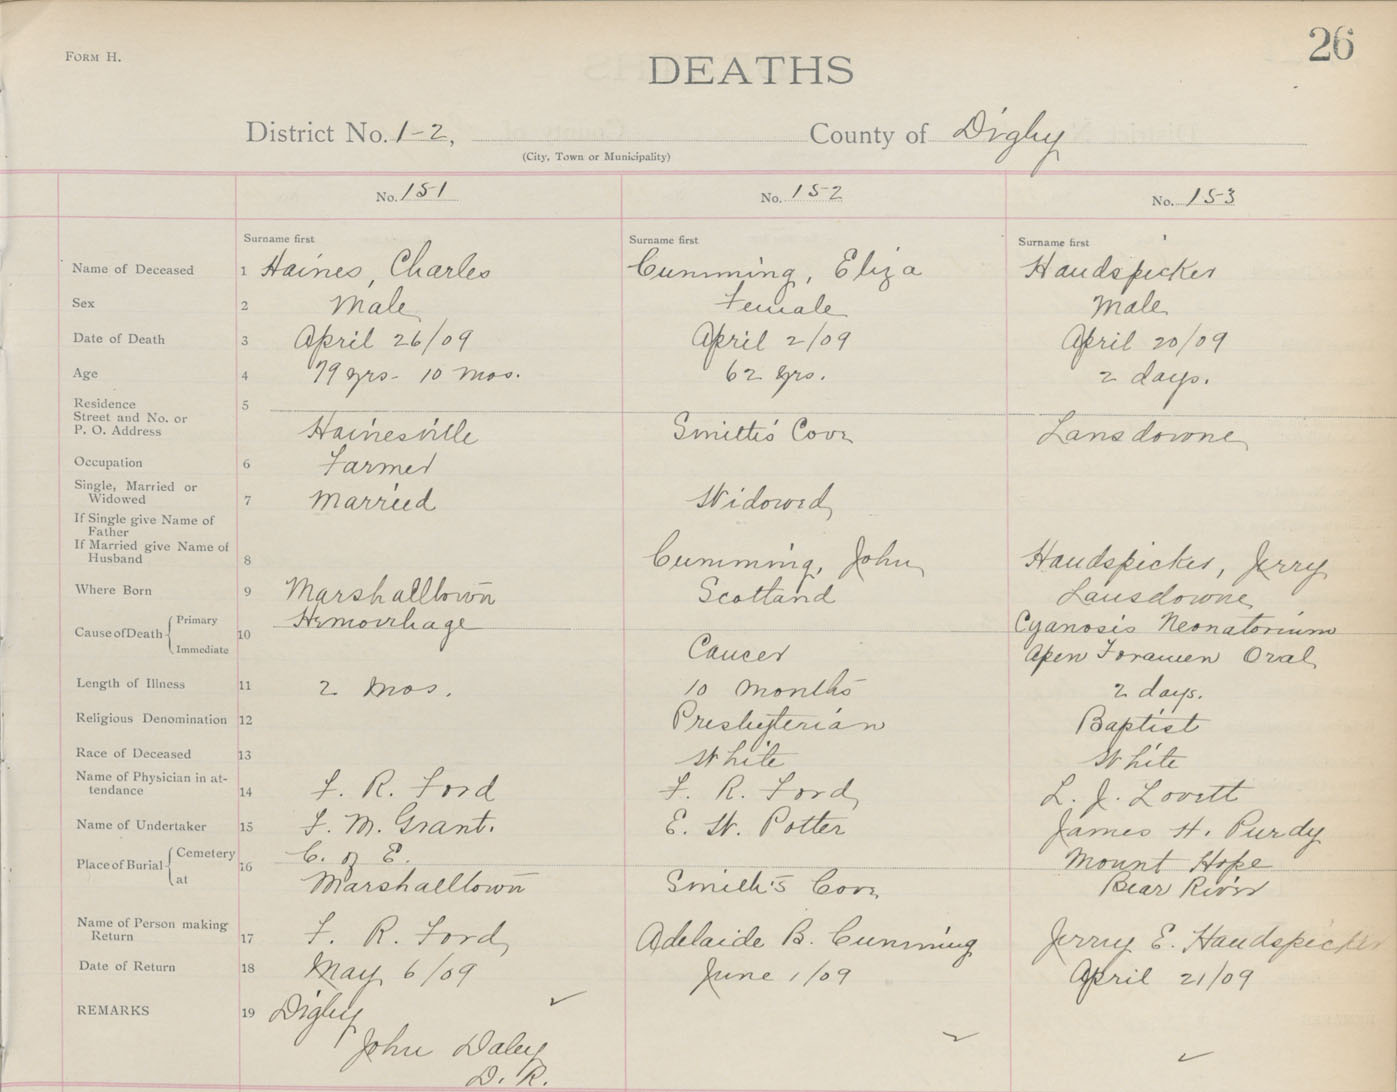 26
FORM H.
DEATHS
District No. 1-2, County of Digby
(City, Town or Municipality)
No. 151 No. 152 No. 153
Surname first Surname first Surname first
Name of Deceased 1 Haines, Charles Cumming, Eliza Handspicker
Sex 2 Male Female Male
Date of Death 3 April 26/09 April 2/09 April 20/09
Age 4 79 yrs - 10 mos. 62 yrs. 2 days.
Residence 5
Street and No. or
P. O. Address Hainesville Smith's Cove Lansdowne
Occupation 6 Farmer
Single, Married or
Widowed 7 Married Widowed
If Single give Name of
Father
If Married give Name of
Husband 8 Cumming, John Handspicker, Jerry
Where Born 9 Marshalltown Scotland Lansdowne
Cause of Death { Primary 10 Hemorrhage Cyanosis Neonatorium
Immediate Cancer Open Foramen Oval
Length of Illness 11 2 mos. 10 months 2 days.
Religious Denomination 12 Presbyterian Baptist
Race of Deceased 13 White White
Name of Physician in at-
tendance 14 F. R. Ford F. R. Ford L. J. Lovett
Name of Undertaker 15 F. M. Grant. E. W. Potter James H. Purdy
Place of Burial { Cemetery 16 C. of E. Mount Hope
at Marshalltown Smith's Cove Bear River
Name of Person making
Return 17 F. R. Ford Adelaide B. Cumming Jerry E. Handspicker
Date of Return 18 May 6/09 June 1/09 April 21/09
REMARKS 19 Digby
John Daley
D. R.